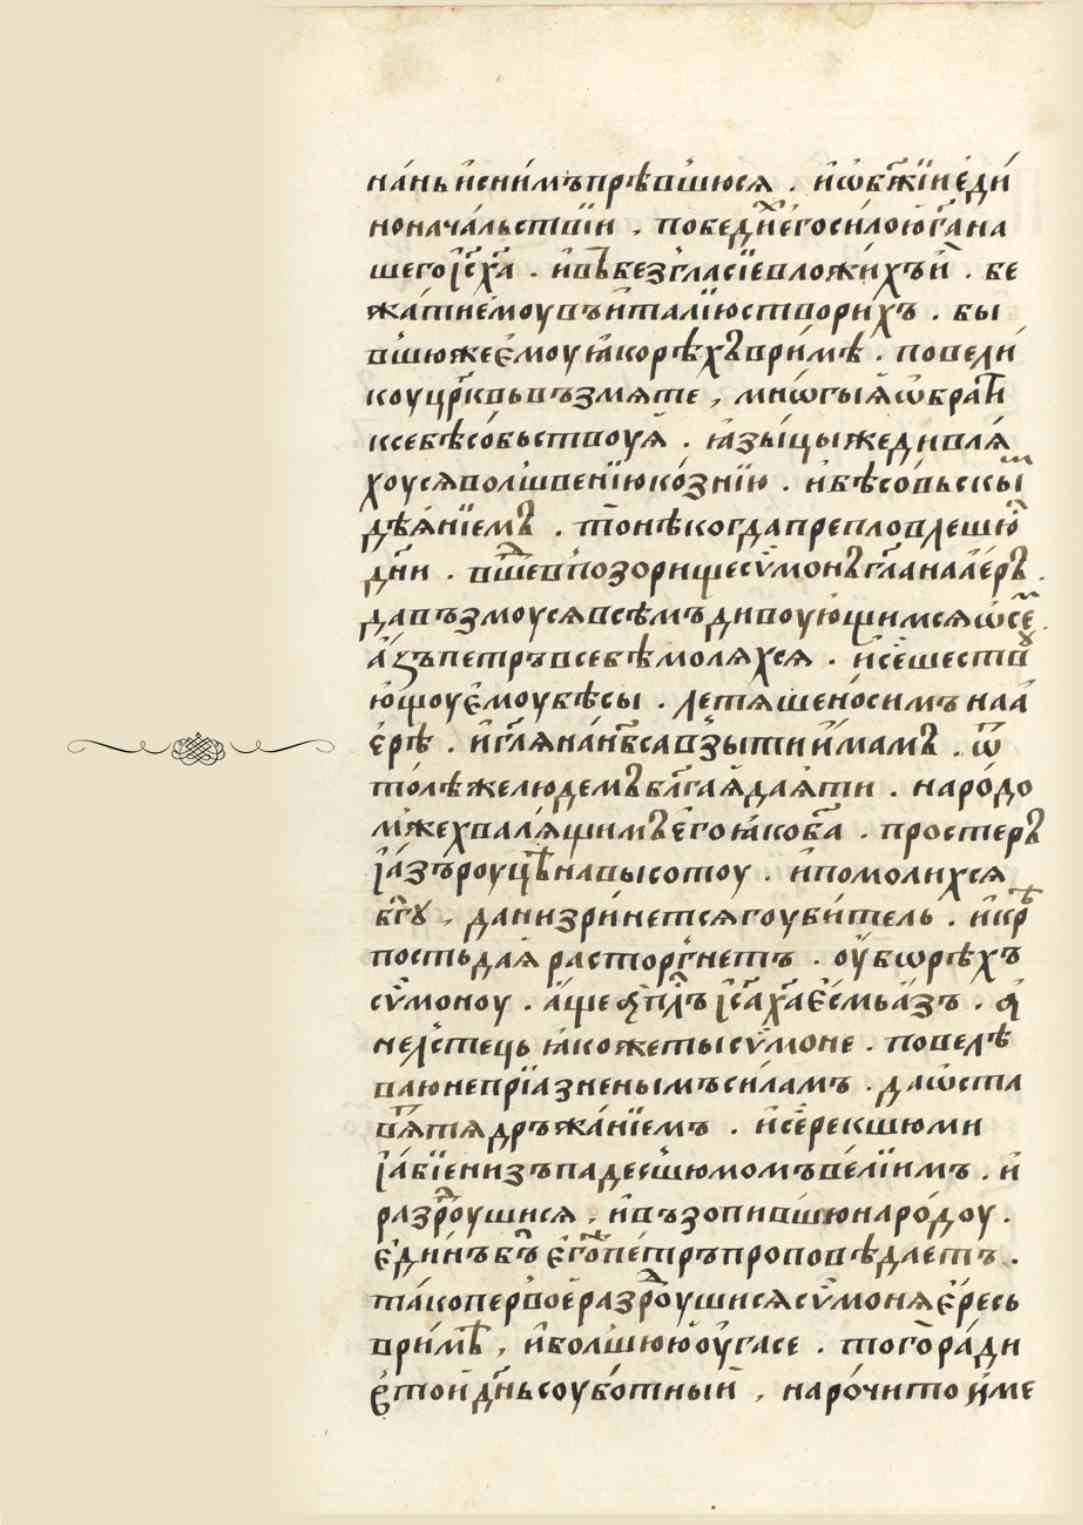 на́нь и҆ сни́мъ прѣвшюся . и҆ ѡ҆ бж҃їи є҆ди
нонача́льствїи , победи́хъ є҆го си́лою гс҃а на
шего і҆с҃ х҃а . и҆ въ безгласїе вложи́хъ и҆̀ . бе
жа́тие є҆моу въ и҆талїю створи́хъ . бы
вшю же є҆моу ꙗ҆ко рѣхъ в ри́мѣ . повели́
коу цр҃ковь възмѧте , мнѡ́гыѧ ѡ҆брати
к себѣ со́бьствоуѧ . ꙗ҆зы́цы же дивлѧ́
хоусѧ волшвенїю ко́знїю . и҆ бѣсо́вьскы
дѣѧ́нїемъ . то нѣкогда препловлешю
дн҃и . вшед в позорище сѵ́монъ гл҃а на а҆е́ръ .
да възмоусѧ всѣмъ дивоую́щимсѧ ѡ҆ се .
а҆́зъ петръ в себѣ молѧхсѧ . и҆ се́ шеств
ю́щоу є҆моу бѣсы . летѧще но́симъ на а҆
є҆рѣ . и҆ гл҃ѧ на нб҃са взы́ти и҆́мамъ . ѿ
то́лѣ же людемъ бл҃гаѧ даѧ́ти . наро́до
мже хвалѧ́щимъ є҆го ꙗ҆ко б҃а . простеръ
ꙗ҆́зъ роуцѣ на высотоу . и҆ помолихсѧ
бг҃у , да низри́нетсѧ гоуби́тель . и҆ крѣ
пость даѧ расторгнетъ . оу҆бѡ рѣхъ
сѵ́моноу . а҆́ще а҆п҃лъ і҆с҃а х҃а є҆смь а҆́зъ . а҆
не лстець ꙗ҆коже ты сѵ́моне . повелѣ
ваю непрїа́зненымъ си́ламъ . да ѡ҆ста
вѧтъ тѧ дръжа́нїемъ . и҆ се́ рекшю ми
ꙗ҆́бїе низъпадесѧ шюмомъ ве́лїимъ . и҆
разроушисѧ , и҆ възопившю наро́доу .
є҆ди́нъ бг҃ъ є҆го́же пе́тръ проповѣдаетъ .
та́ко первое разроушисѧ сѵ́монѧ є҆́ресь
в ри́мѣ , и҆ болшюю оу҆гасе . того ра́ди
є҆́ той дн҃ь соубо́тный , наро́чито и҆́ме